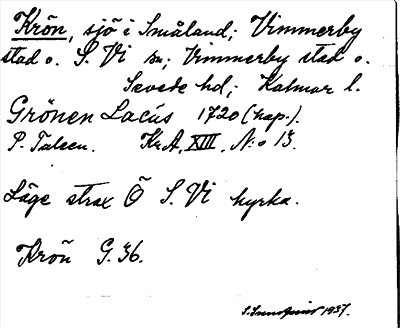 Krön, sjö i Småland; Vimmerby
stad o. S. Vi sn; Vimmerby stad o.
Sevede hd; Kalmar l.
Grönen Lacus 1720 (kap.).
P. Tulsen. KrA, XIII, N:o 13.
Läge strax Ö S. Vi kyrka.
Krön G. 36.
1937.